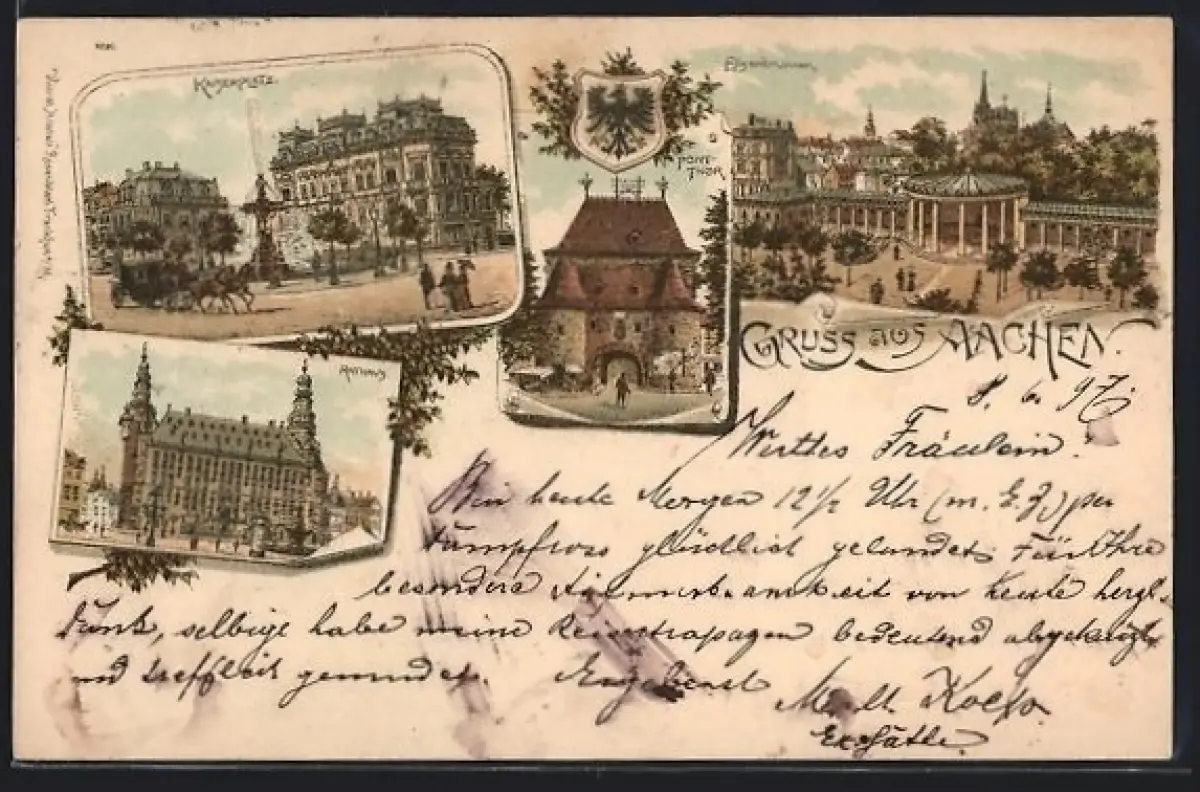 KAISERPLATZ.
Elisenbrunnen.
PONT-
THOR
RATHAUS
GRUSS AUS AACHEN.
8. 6. 97.
Werthes Fräulein.
Bin heute Morgen 12 1/2 Uhr (m. E. Z.) per
Dampfross glücklich gelandet. Für Ihre
besondere Aufmerksamkeit von heute herzl.
Dank, selbige habe meine Reisestrapazen bedeutend abgekürzt
und trefflich gemundet. Ergebenst